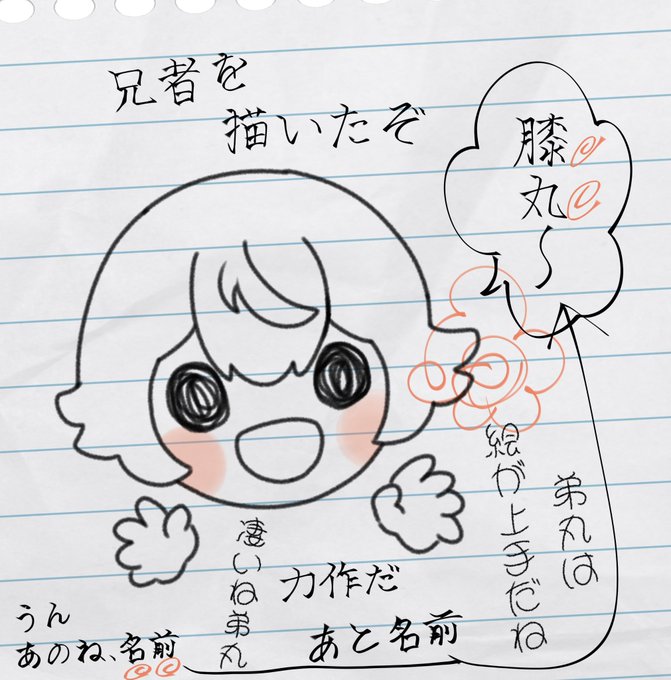 兄者を
描いたぞ
膝丸
〜
弟丸は
絵が上手だね
凄いね弟丸
力作だ
あと名前
うん
あのね、名前